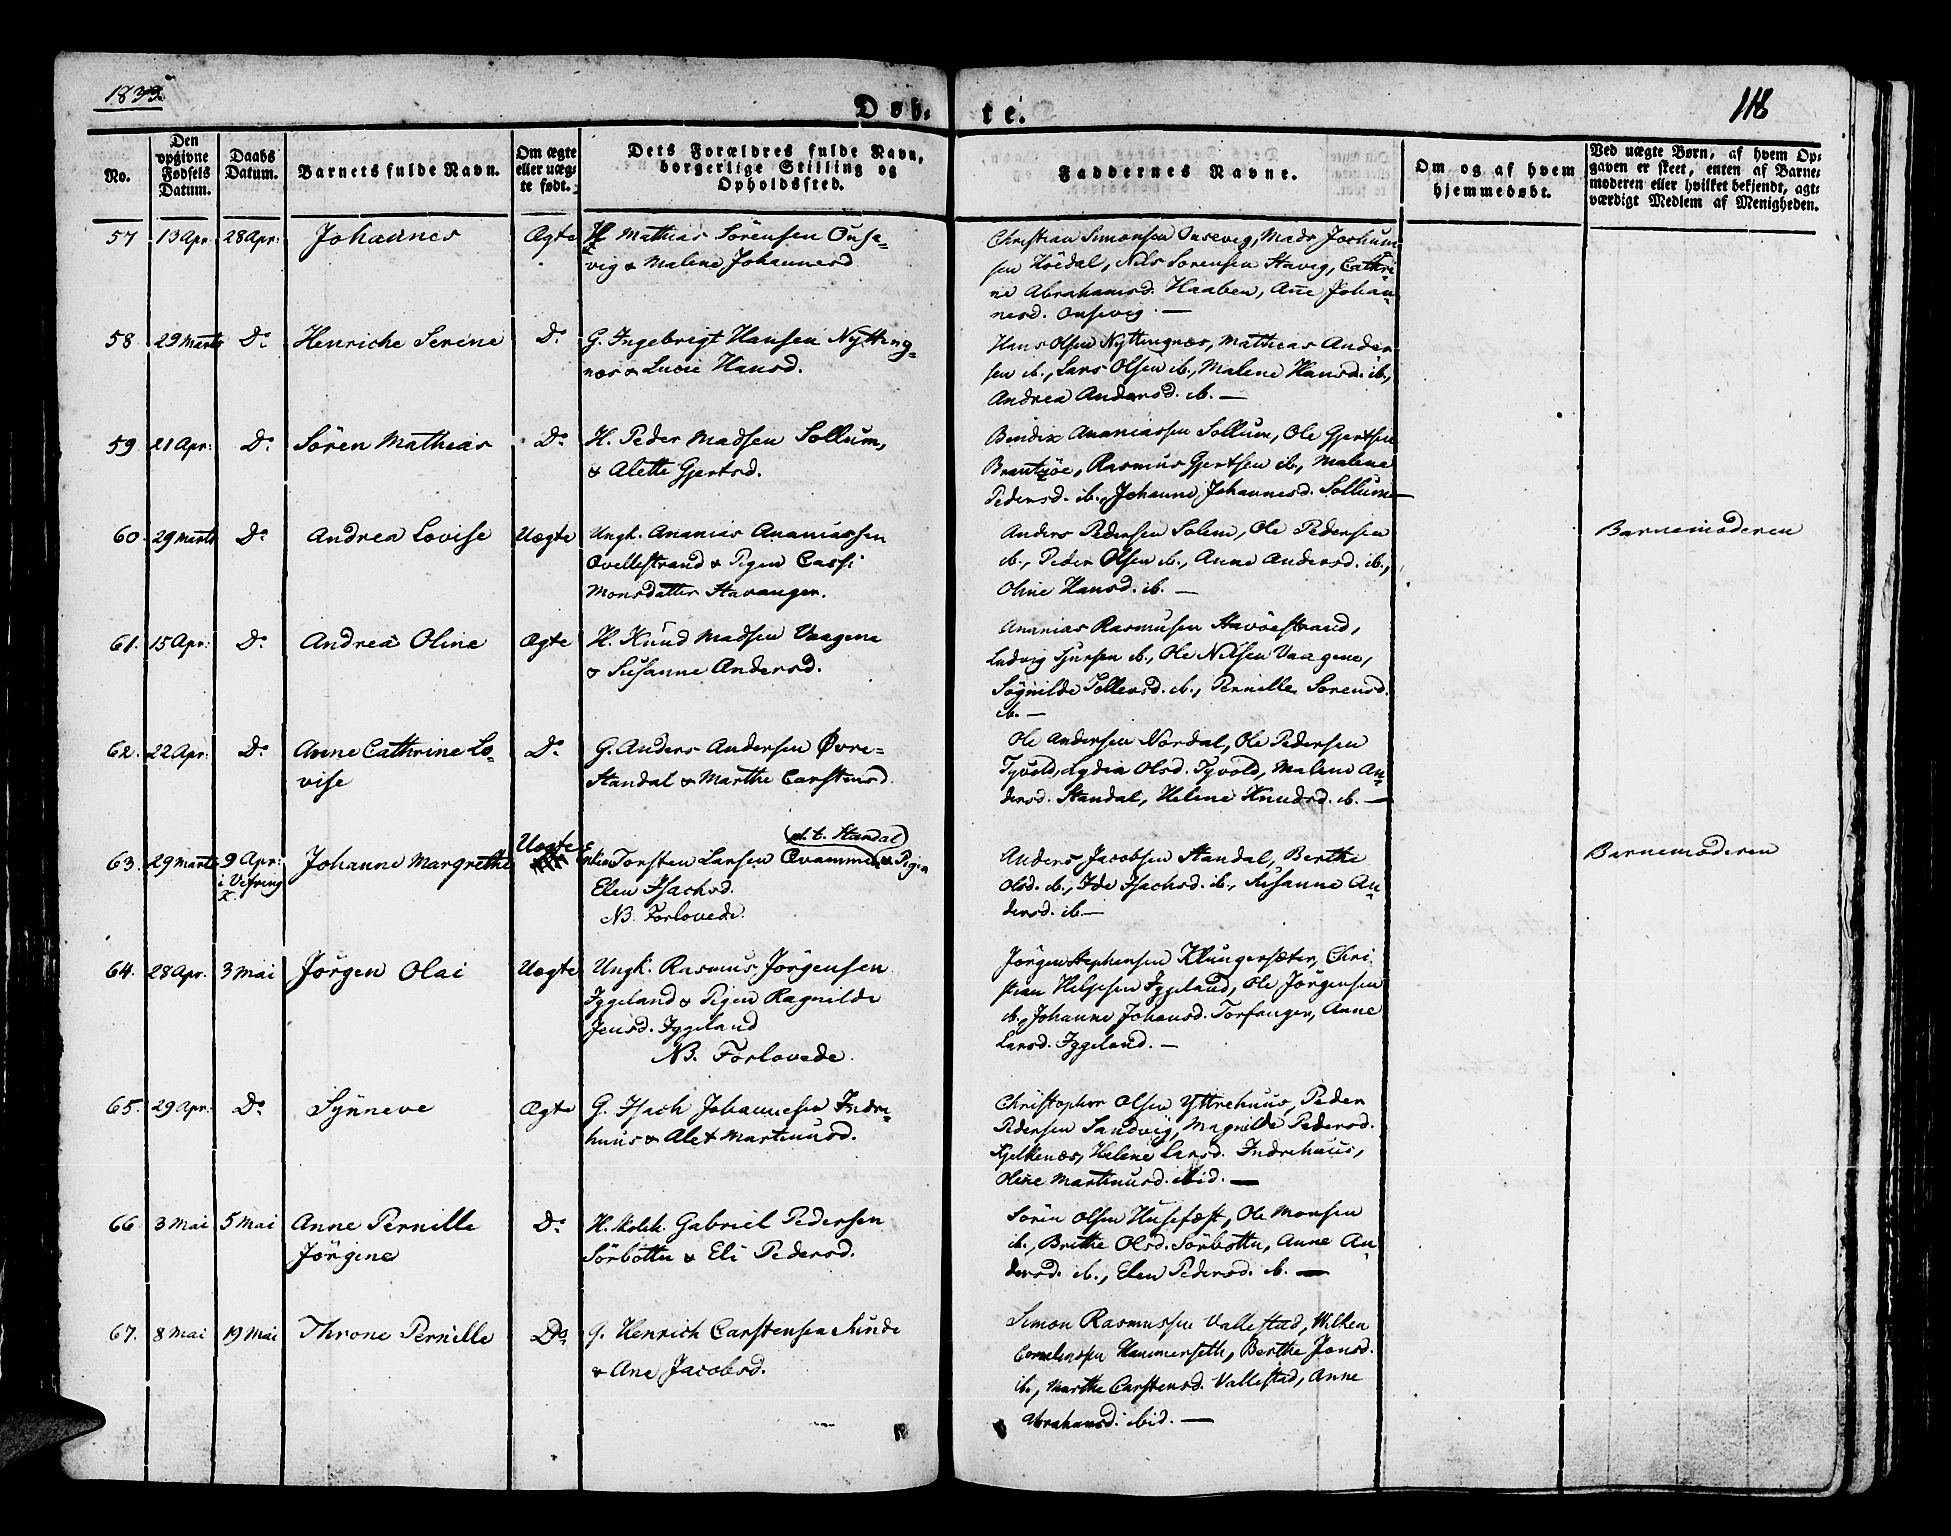 1833.
Døb-
te.
118
No.
Den
opgivne
Fødsels
Datum.
Daabs
Datum.
Barnets fulde Navn.
Om ægte
eller uæg-
te født.
Dets Forældres fulde Navn,
borgerlige Stilling og
Opholdssted.
Faddernes Navne.
Om og af hvem
hjemmedøbt.
Ved uægte Børn, af hvem Op-
gaven er skeet, enten af Barne-
moderen eller hvilket bekjendt, agt-
værdigt Medlem af Menigheden.
57 13 Apr. 28 Apr: Johannes Ægte H. Mathias Sörensen Onse-
vig & Malene Johannesd
Christian Simonsen Onsevig, Mads Jochum-
sen Höedal, Nils Sorensen Stavig, Cathri-
ne Abrahamsd. Haaben, Ane Johan-
nesd. Onsevig. —
58 29 Marts Do. Henriche Serine Do. G. Ingebrigt Hansen Nytting-
næs & Lucie Hansd.
Hans Olsen Nyttingnæs, Mathias Ander-
sen ib., Lars Olsen ib., Malene Hansd. ib.,
Andrea Andersd. ib. —
59 21 Apr: Do. Sören Mathias Do. H. Peder Madsen Sollum,
& Alette Gjertsd.
Bendix Ananiassen Sollum, Ole Gjertsen
Rasmus Gjertsen ib., Malene
Pedersd. ib., Johanne Johannesd. Sollum —
60. 29 Marts Do. Andrea Lovise Uægte Ungk. Ananias Ananiassen
Qvellestrand & Pigen Cassi
Monsdatter Stavanger.
Anders Pedersen Solem, Ole Pedersen
ib., Peder Olsen ib., Anne Andersd. ib.,
Oline Hansd. ib. —
Barnemoderen
61. 15 Apr: Do. Andrea Oline Ægte H. Knud Madsen Vaagene
& Susanne Andersd.
Ananias Rasmusen Stavöestrand,
Ludvig Sjursen ib., Ole Nilsen Vaagene,
Søgnilde Tollevsd. ib., Pernille Sorensd.
ib. —
62. 22 Apr: Do. Anne Cathrine Lo- Do. G. Anders Andersen Øvre-
vise
Standal & Marthe Carstensd.
Ole Andersen Nordal, Ole Pedersen
Tyvold, Lydia Olsd. Tyvold, Malene An-
dersd. Standal, Helene Knudsd. ib. —
63. 29 Marts 9 Apr: Johanne Margrethe Uægte Torsten Larsen Qvamme (p.t. Standal) & Pigen
i Vefring
K.
Elen Isachsd.
NB. Forlovede.
Anders Jacobsen Standal, Berthe
Olsd. ib., Ide Isachsd. ib., Susanne An-
dersd. ib. —
Barnemoderen
64. 28 Apr. 3 Mai Jörgen Olai Uægte Ungk. Rasmus Jörgensen
Iggeland & Pigen Ragnilde
Jensd. Iggeland
NB. Forlovede.
Jörgen Stephensen Klungersæter, Chri-
stian Helgesen Iggeland, Ole Jörgensen
ib., Johanne Johansd. Torfanger, Anne
Larsd. Iggeland. —
65. 29 Apr: Do. Synneve Ægte G. Isach Johannesen Indre-
huus & Alet Martinusd.
Christopher Olsen Yttrehuus, Peder
Pedersen Sandvig, Magnilde Pedersd.
Kjelkenæs, Helene Larsd. Indrehuus,
Oline Martinusd. ibid. —
66. 3 Mai 5 Mai Anne Pernille Do. H. Skoleh. Gabriel Pedersen
Jörgine
Sörbotten & Eli Pedersd.
Sören Olsen Husefæst, Ole Monsen
ib., Brithe Olsd. Sörbotten, Anne An-
dersd. ib., Elen Pedersd. ib. —
67. 8 Mai 19 Mai Throne Pernille Do. G. Henrich Carstensen Sunde
& Ane Jacobsd.
Simon Rasmussen Vallestad, Wilken
Corneliussen Hammerseth, Berthe Jensd.
ib., Marthe Carstensd. Vallestad, Anne
Abrahamsd. ibid. —